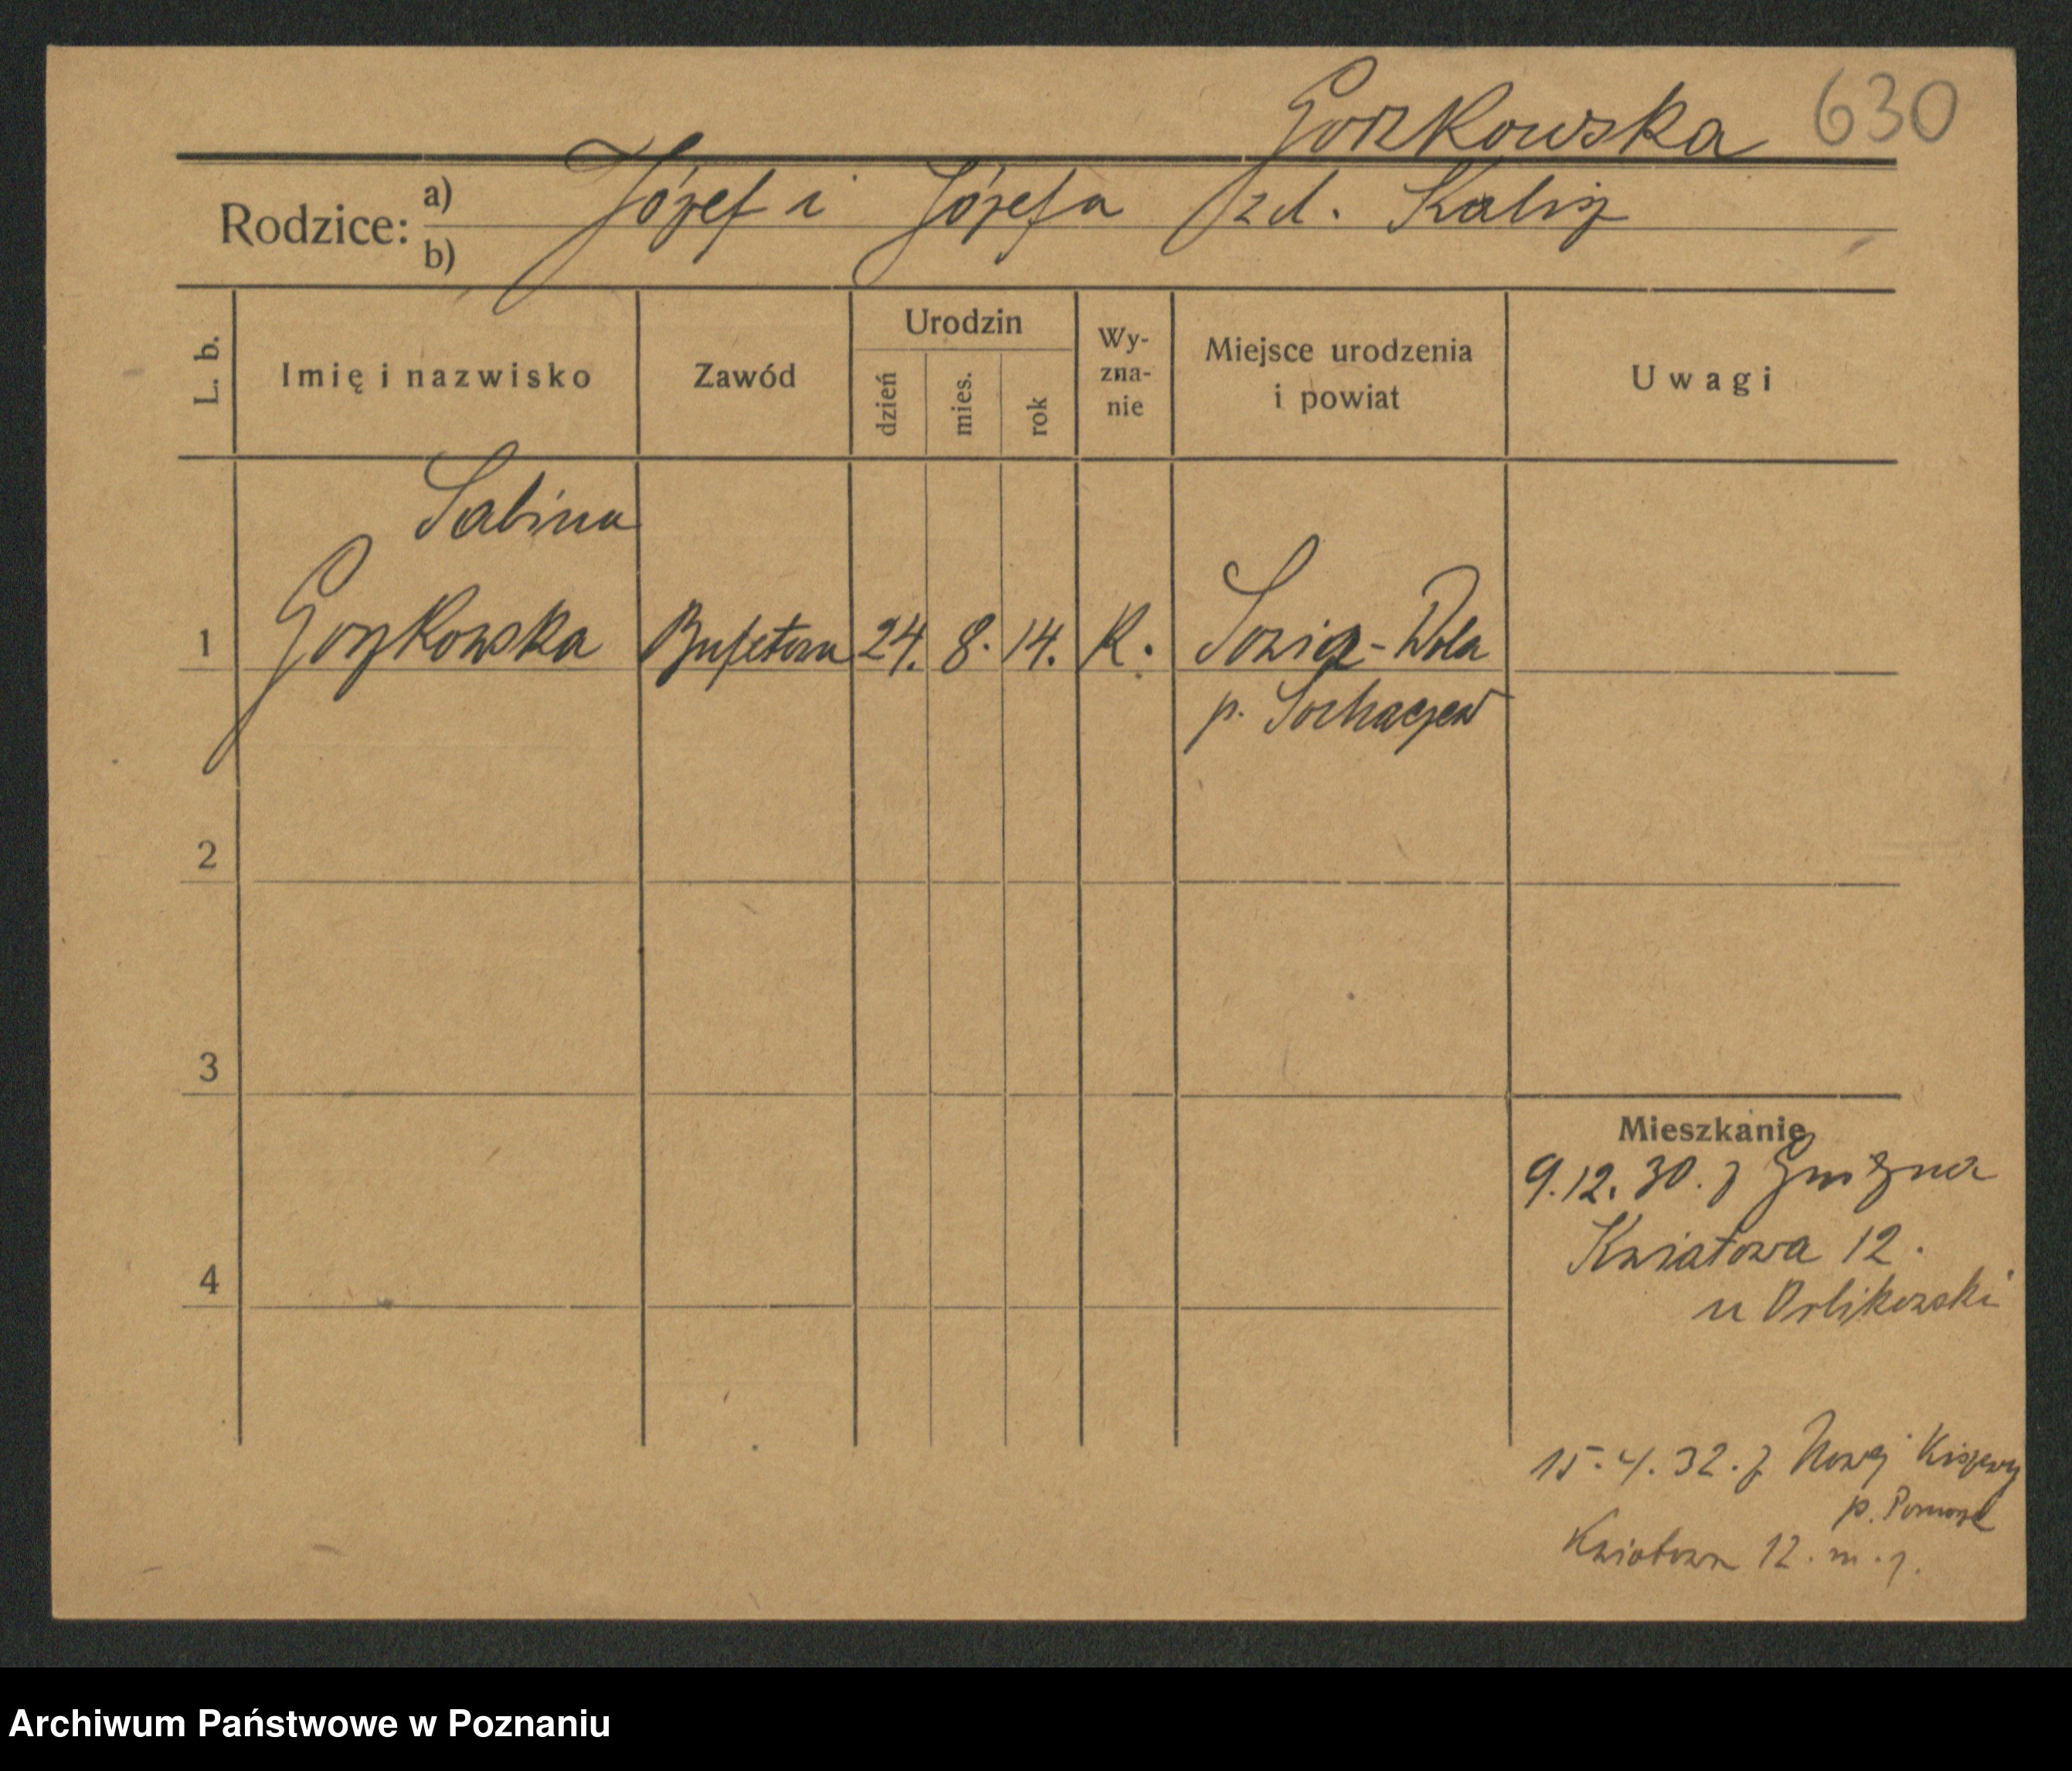 Gorzkowska 630
Rodzice: a) Józef i Józefa zd. Kalisz
b)
L. b.
Imię i nazwisko
Zawód
Urodzin
dzień
mies.
rok
Wy-
zna-
nie
Miejsce urodzenia
i powiat
Uwagi
Sabina
1 Gorzkowska Bufetowa 24. 8. 14. K. Sowia-Wola
p. Sochaczew
2
3
4
Mieszkanie
9.12.30. z Gniezna
Kwiatowa 12.
u Orlikowski
15.4.32. z Nowej Kiszewy
p.
Kwiatowa 12. m. 1.
Archiwum Państwowe w Poznaniu